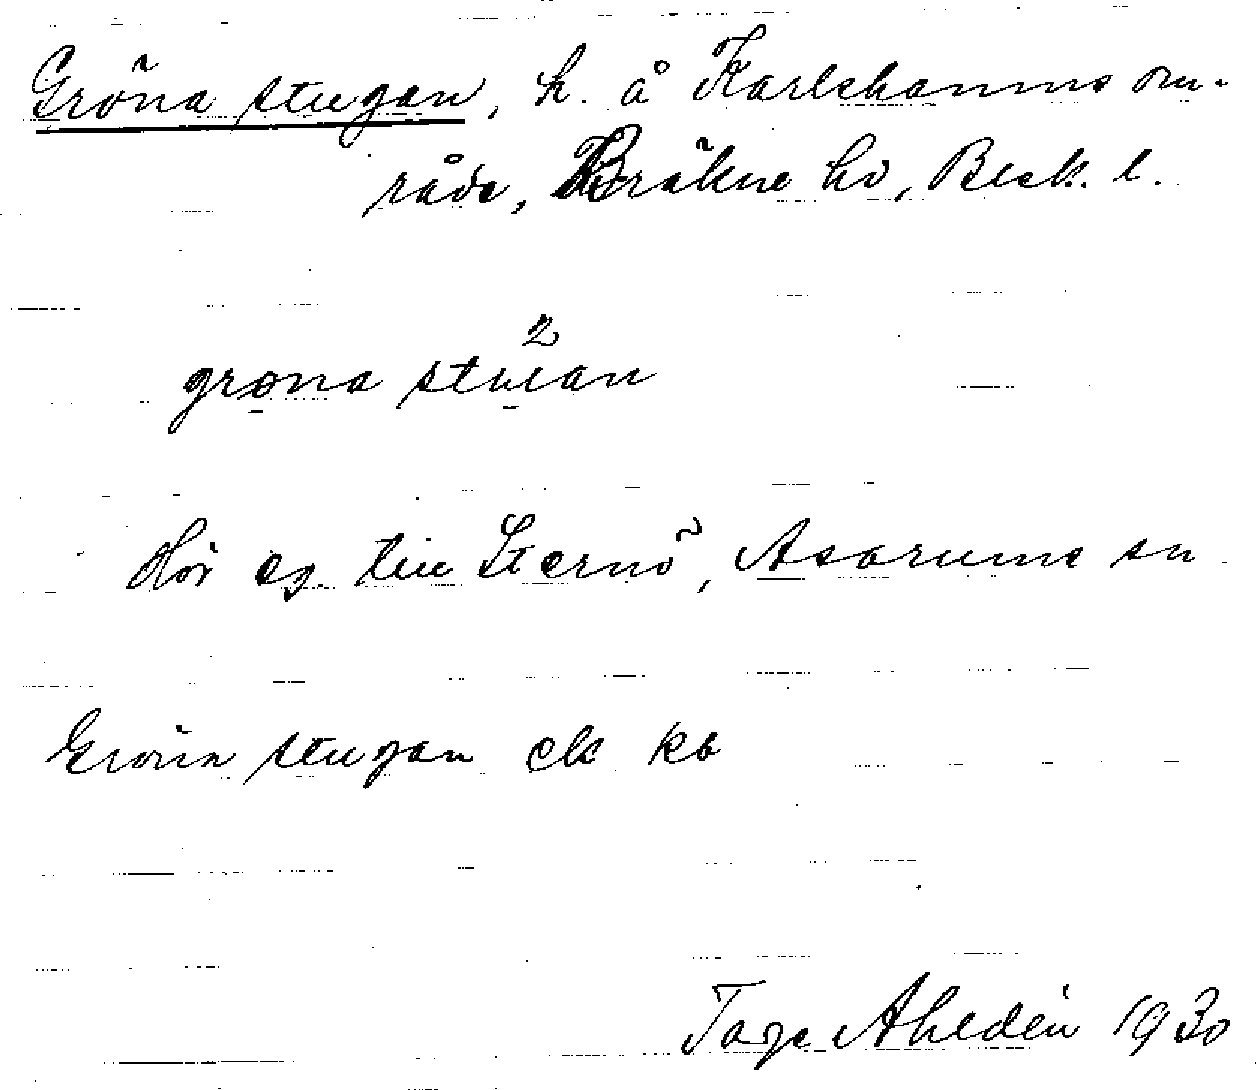 Gröna stugan, h. å Karlshamns om-
råde, Bräkne hd, Blek. l.
grǫna stu²an
Hör eg. till Sternö, Asarums sn
Gröna stugan ek kb
Tage Ahldén 1930